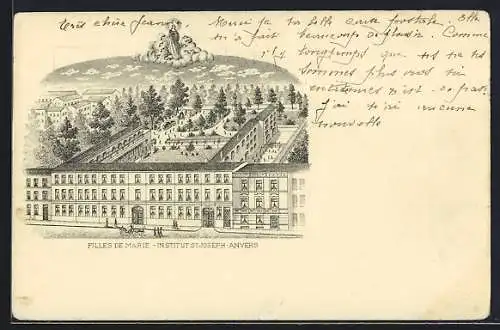 Très chère Jeanne, Merci pr ta belle carte postale. Elle
m'a fait beaucoup de plaisir. Comme
il y a longtemps que ns ne ns
sommes plus vus
n'est-ce pas.
J'ai aucune
nouvelle
FILLES DE MARIE - INSTITUT ST JOSEPH - ANVERS